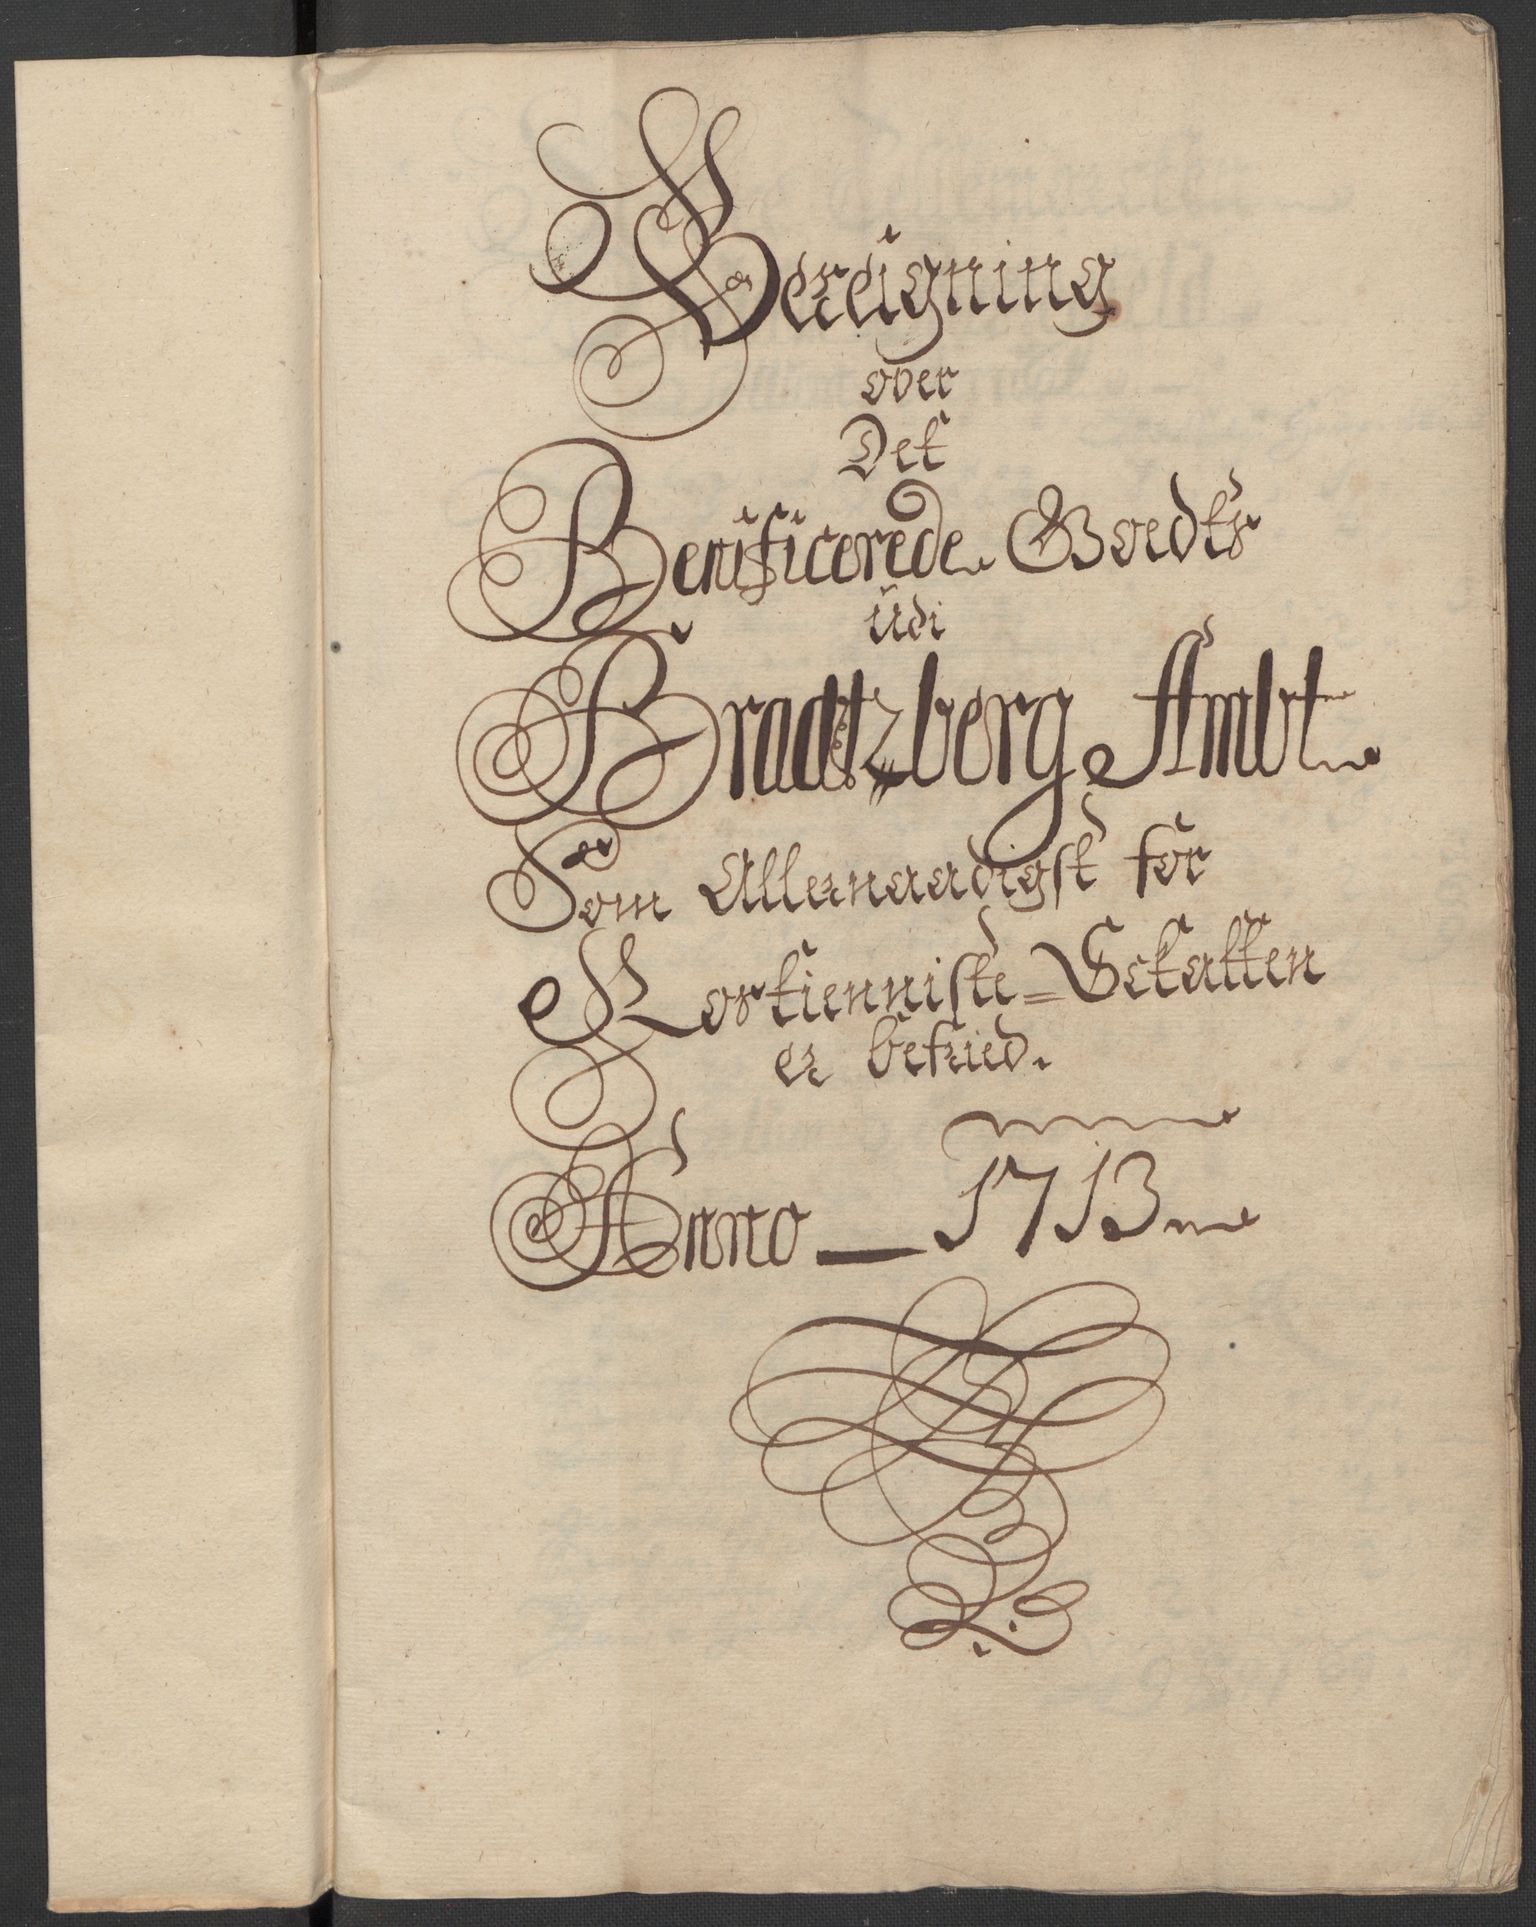 Bereigning
over
Det
Benificerede Goedts
üdi
Bradtzberg Ambt
Som Allernaadigst for
Rostienniste-Schatten
er befried.
Anno 1713